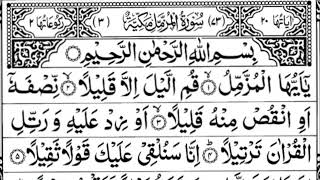 اٰيَاتُهَا ٢٠ (٧٣) سُوْرَةُ الْمُزَّمِّلِ مَكِّيَّةٌ (٣) رُكُوْعَاتُهَا ٢
بِسْمِ اللّٰهِ الرَّحْمٰنِ الرَّحِيْمِ
يٰۤاَيُّهَا الْمُزَّمِّلُ ۝١ قُمِ الَّيْلَ اِلَّا قَلِيْلًا ۝٢ نِّصْفَهٗۤ
اَوِ انْقُصْ مِنْهُ قَلِيْلًا ۝٣ اَوْ زِدْ عَلَيْهِ وَ رَتِّلِ
الْقُرْاٰنَ تَرْتِيْلًا ۝٤ اِنَّا سَنُلْقِيْ عَلَيْكَ قَوْلًا ثَقِيْلًا ۝٥